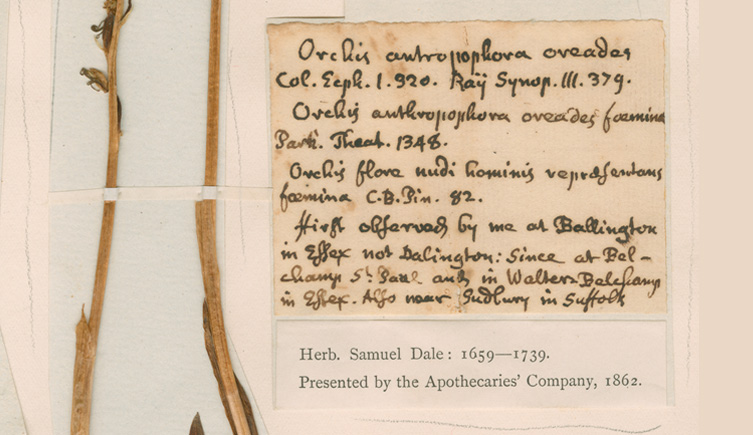 Orchis antropophora oreades
Col. Ecph. 1. 320. Raÿ Synop. III. 379.
Orchis anthropophora oreades fœmina
Park. Theat. 1348.
Orchis flore nudi hominis repræsentans
fœmina C.B. Pin. 82.
ffirst observed by me at Ballington
in Essex not Dalington: Since at Bel-
champ St. Paul and in Walter Belchamp
in Essex. Also near Sudbury in Suffolk
Herb. Samuel Dale: 1659—1739.
Presented by the Apothecaries' Company, 1862.